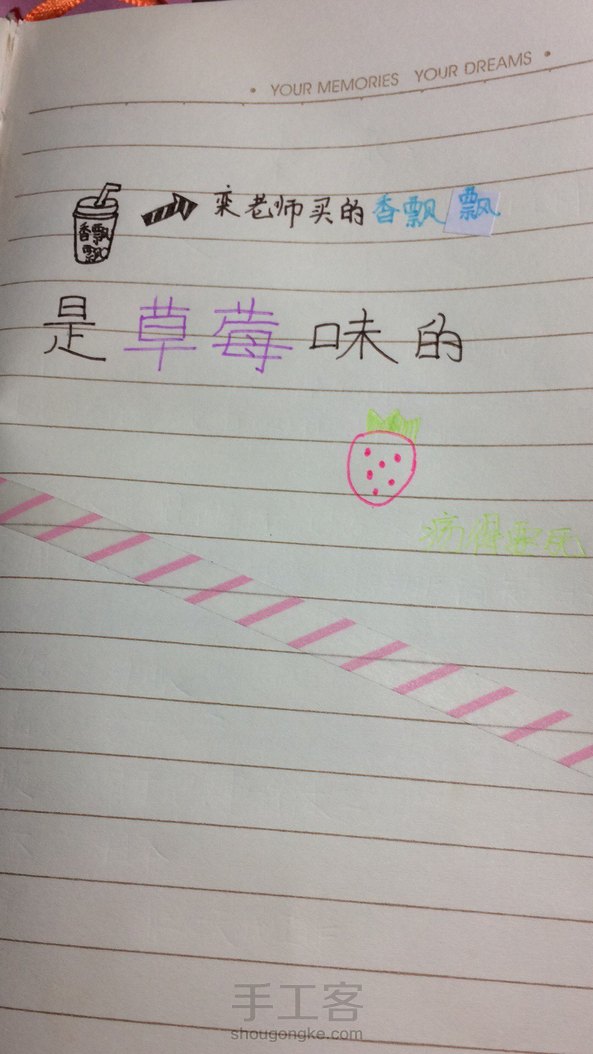 • YOUR MEMORIES YOUR DREAMS •
香飘飘
栾老师买的香飘飘
是草莓味的
手工客
shougongke.com